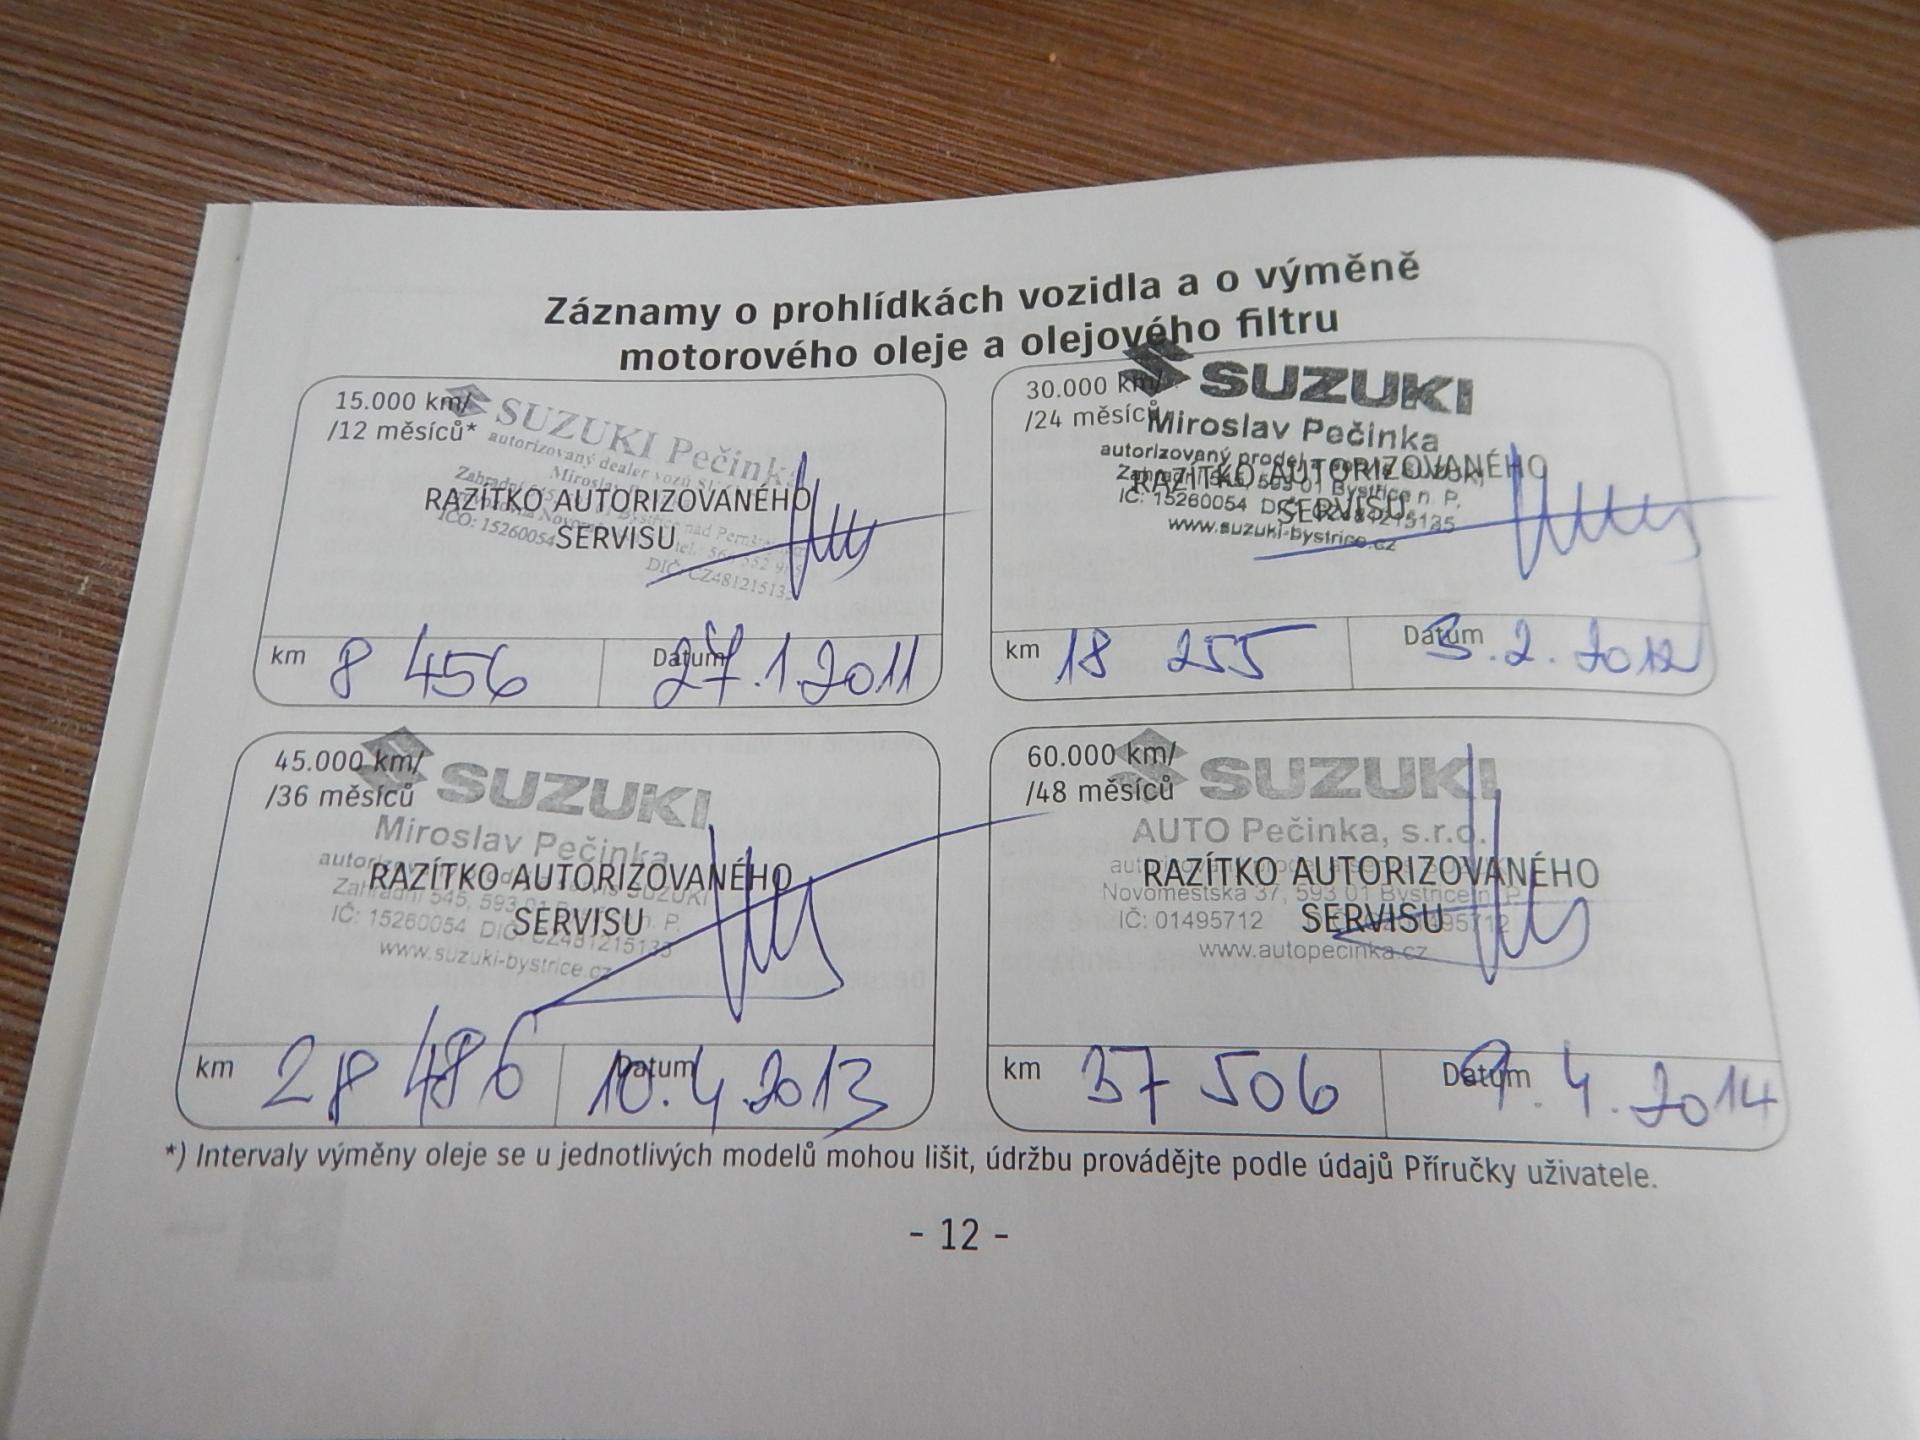 Záznamy o prohlídkách vozidla a o výměně
motorového oleje a olejového filtru
15.000 km/
/12 měsíců*
SUZUKI Pečinka
autorizovaný dealer vozů
Miroslav
Zahradní 545,
nad
RAZÍTKO AUTORIZOVANÉHO
SERVISU
IČO: 15260054
DIČ: CZ481215135
km 8 456
Datum 27.1.2011
30.000 km/
/24 měsíců
SUZUKI
Miroslav Pečinka
autorizovaný prodej
Zahradní 545, 593 01 Bystřice n. P.
RAZÍTKO AUTORIZOVANÉHO
SERVISU
IČ: 15260054 DIČ: CZ481215135
www.suzuki-bystrice.cz
km 18 255
Datum 3.2.2012
45.000 km/
/36 měsíců
SUZUKI
Miroslav Pečinka
autorizovaný prodej a servis SUZUKI
RAZÍTKO AUTORIZOVANÉHO
Zahradní 545, 593 01 Bystřice n. P.
SERVISU
IČ: 15260054 DIČ: CZ481215135
www.suzuki-bystrice.cz
km 28 486
Datum 10.4.2013
60.000 km/
/48 měsíců
SUZUKI
AUTO Pečinka, s.r.o.
RAZÍTKO AUTORIZOVANÉHO
Novoměstská 37, 593 01 Bystřice n. P.
SERVISU
IČ: 01495712
www.autopecinka.cz
km 37 506
Datum 9.4.2014
*) Intervaly výměny oleje se u jednotlivých modelů mohou lišit, údržbu provádějte podle údajů Příručky uživatele.
- 12 -